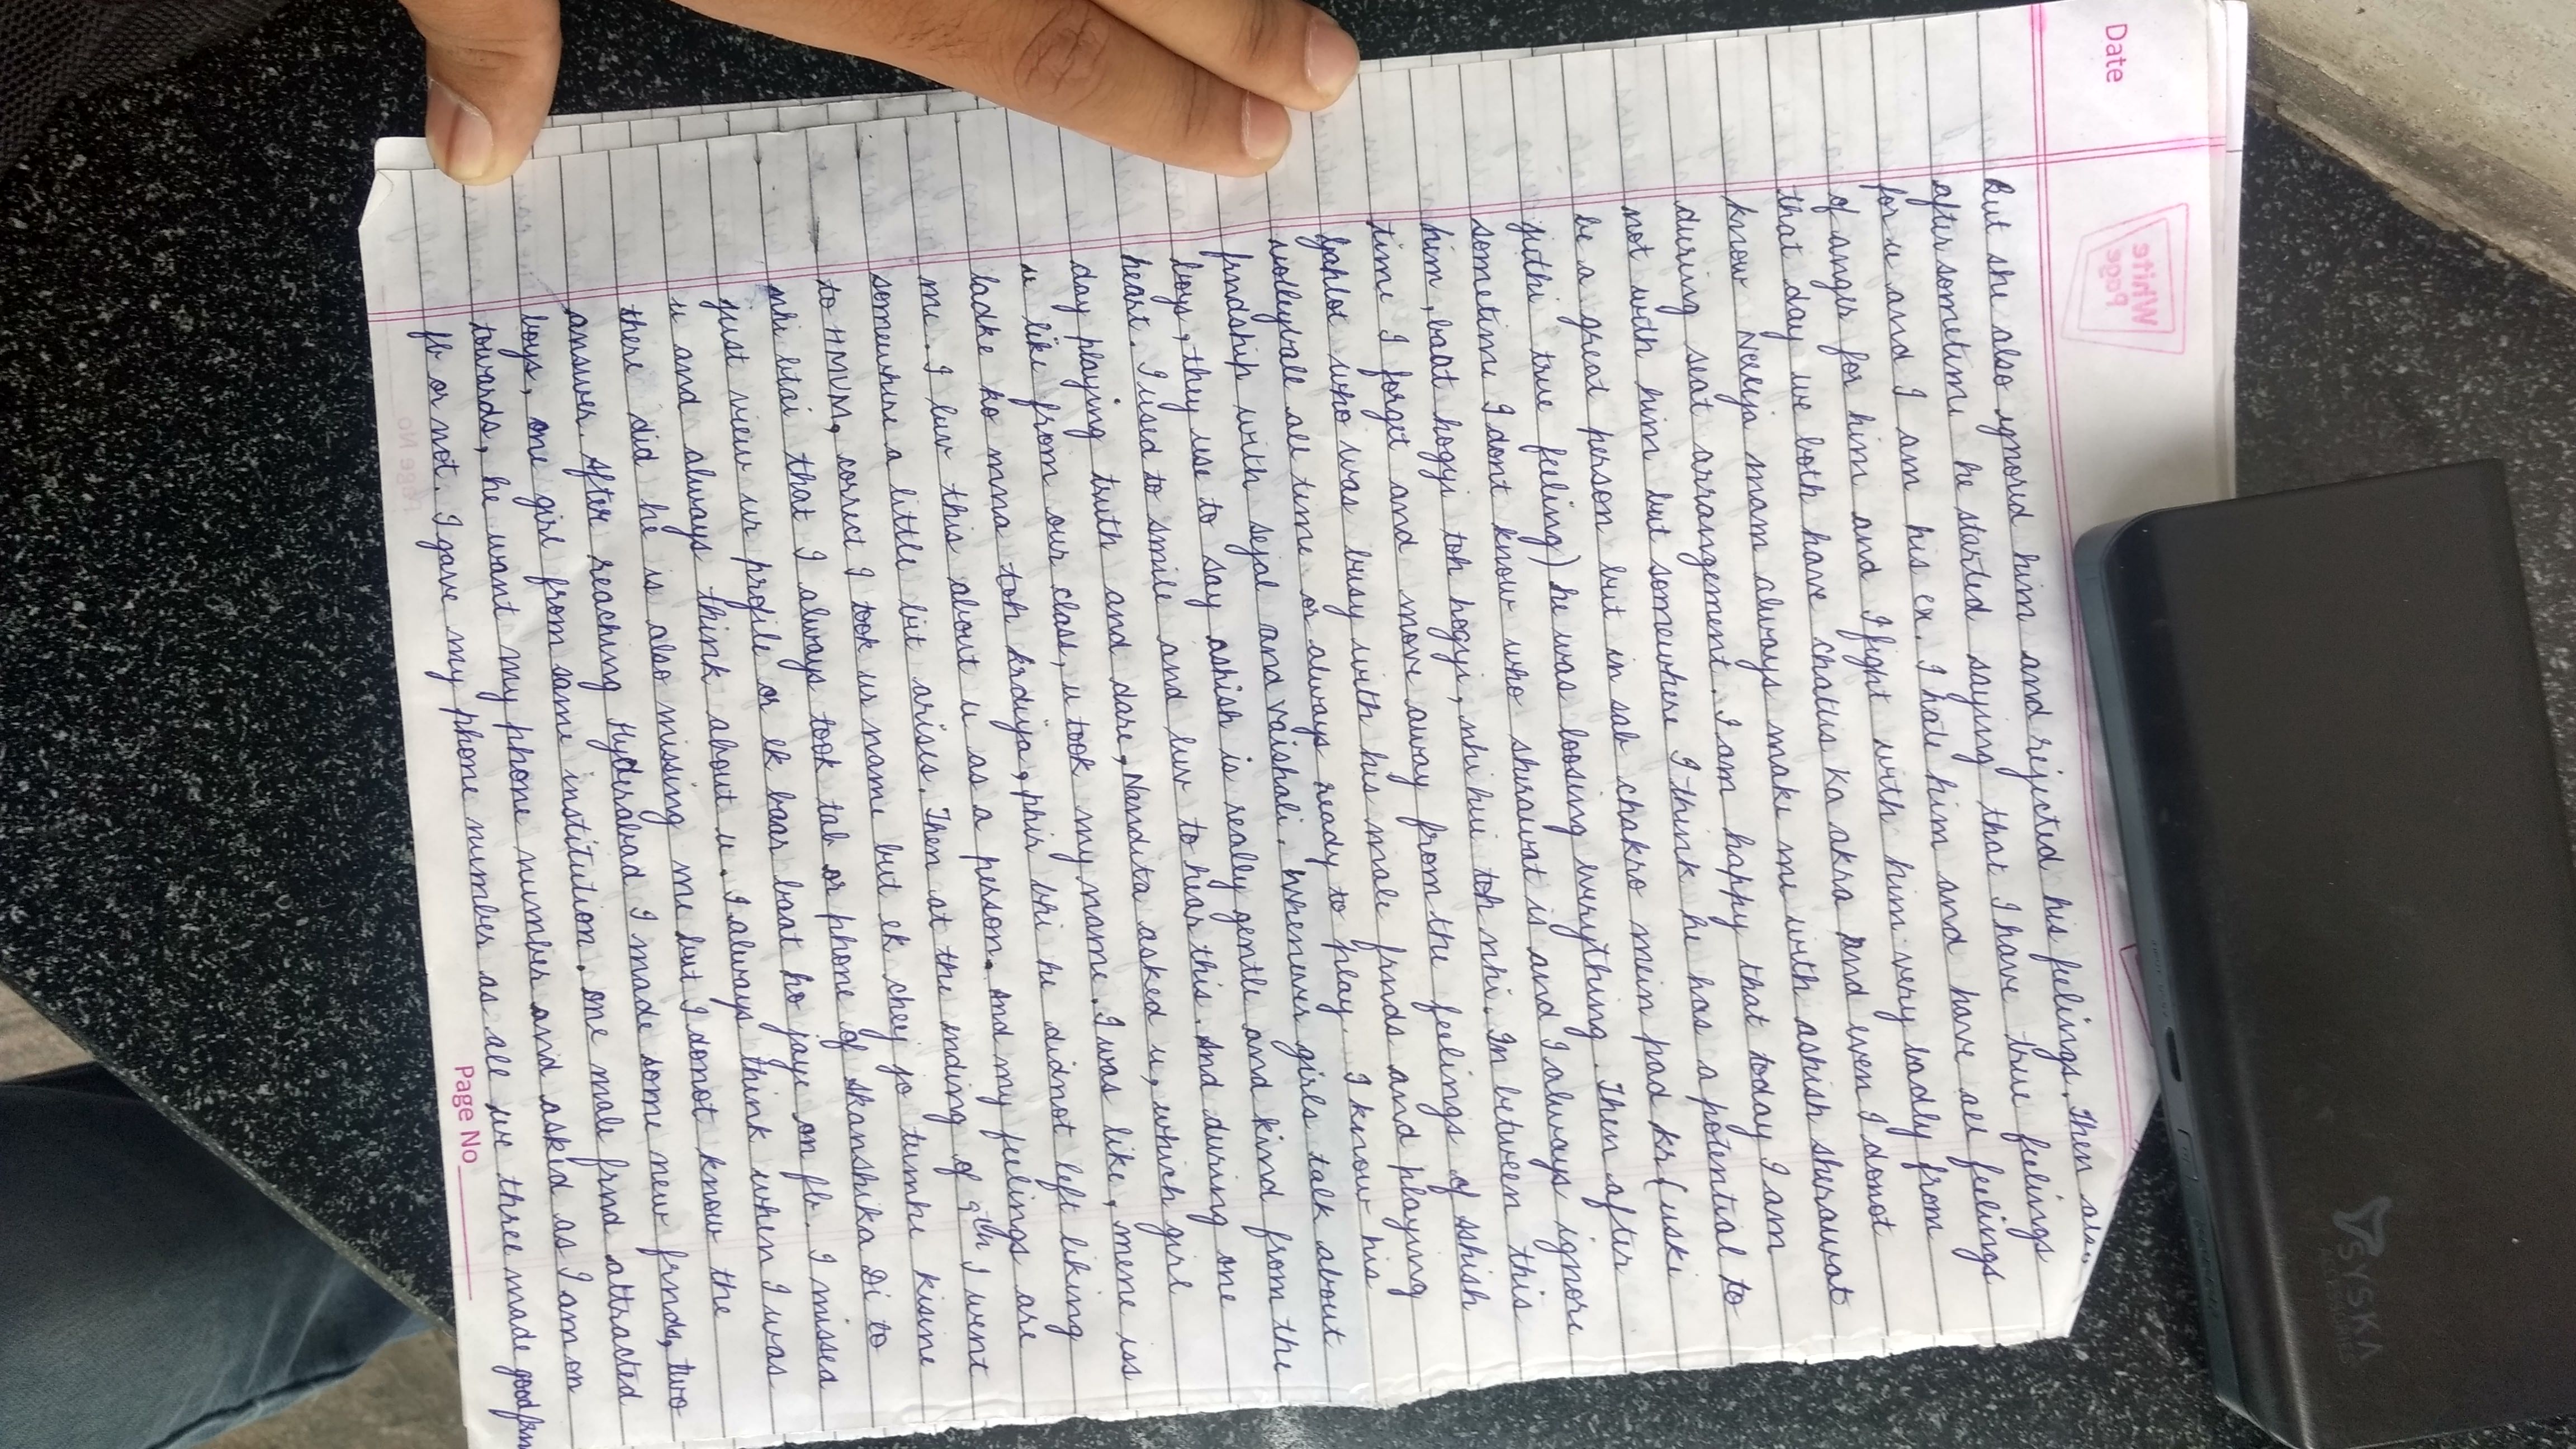 Date
White
Page
But she also ignored him and rejected his feelings. Then
after sometime he started saying that I have true feelings
for u and I am his ex. I hate him and have all feelings
of anger for him and I fight with him very badly from
that day we both have chattis ka akra and even I donot
know Neerja mam always make me with ashish sherawat
during seat arrangement. I am happy that today I am
not with him but somewhere I think he has a potential to
be a great person but in sab chakro mein pad kr (uski
juthi true feeling) he was loosing everything. Then after
sometime I dont know who sherawat is and I always ignore
him, baat hogyi toh hogyi, nhi hui toh nhi. In between this
time I forget and move away from the feelings of Ashish
Gahlot who was busy with his male frnds and playing
volleyball all time or always ready to play. I know his
frndship with sejal and vaishali. Whenever girls talk about
boys, they use to say ashish is really gentle and kind from the
heart. I used to smile and luv to hear this. And during one
day playing truth and dare, Nandita asked u, which girl
u like from our class, u took my name. I was like, mene iss
ladke ko mna toh krdiya, phir bhi he didnot left liking
me. I luv this about u as a person. And my feelings are
somewhere a little bit arises. Then at the ending of 9th I went
to HMVM, correct I took ur name but ek cheej jo tumhe kisine
nhi btai that I always took tab or phone of Akanshika Di to
just view ur profile or ek baar baat ho jaye on fb. I missed
u and always think about u. I always think when I was
there did he is also missing me but I donot know the
answer. After reaching Hyderabad I made some new frnds, two
boys, one girl from same institution. one male frnd attracted
towards, he want my phone number and asked as I am on
fb or not. I gave my phone number as all we three made good
Page No